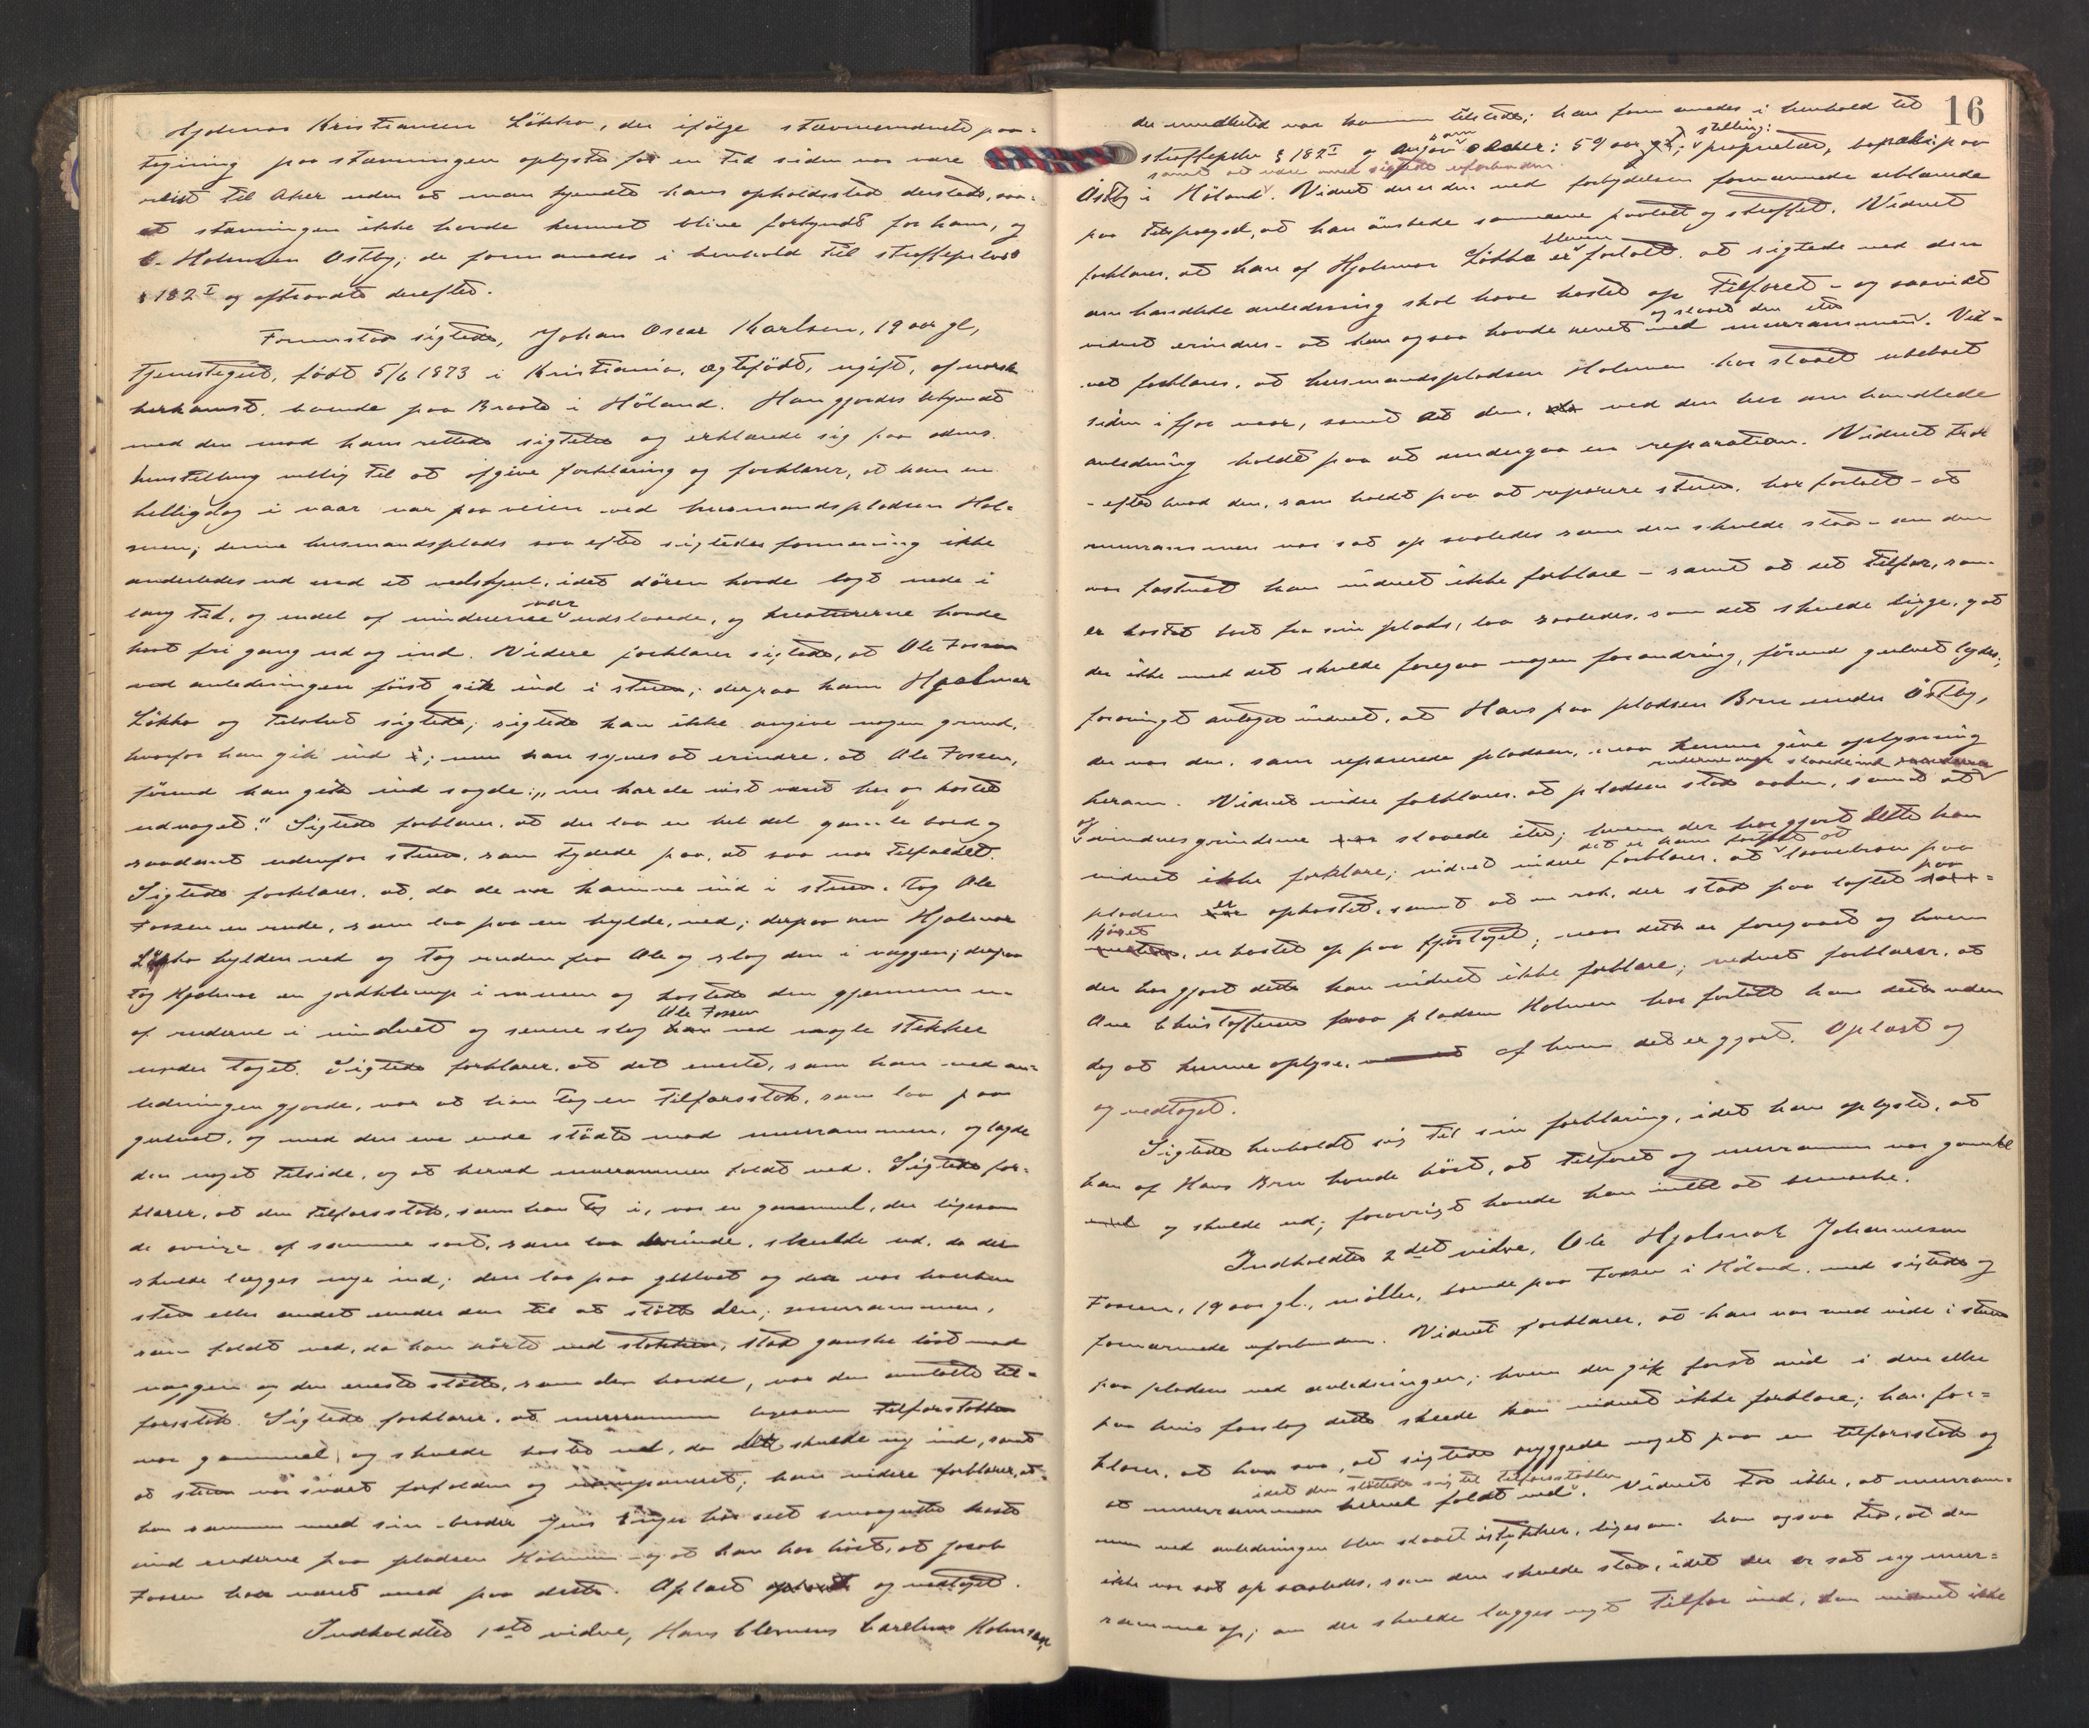 Hjalmar Kristiansen Løkka, der ifølge stævnevidnets paa-
tegning paa stævningen oplystes for en tid siden var være
reist til Aker uden at man kjendte hans opholdssted dersteds, saa-
at stævningen ikke havde kunnet blive forkyndt for ham, og
C. Holmsen Østby; de formanedes i henhold til straffeploves
§ 182 I og aftraadte derefter.
Fremstod sigtede, Johan Oscar Karlsen, 19 aar gl,
tjenestegut, født 5/6 1873 i Kristiania, ægtefødt, ugift, af norsk
herkomst, boende paa Braate i Høland. Han gjordes bekjendt
med den mod ham rettede sigtelse og erklærede sig paa adms.
henstilling villig til at afgive forklaring og forklarer, at han en
helligdag i vaar var paa veien ved husmandspladsen Hol-
men; denne husmandsplads saa efter sigtedes formening ikke
anderledes ud end et vedskjul, idet døren havde lagt nede i
lang tid, og endel af vinduerne var udslaaede, og kreaturerne havde
havt fri gang ud og ind. Videre forklarer sigtede, at Ole Fossen
ved anledningen først gik ind i stuen; derpaa kom Hjalmar
Løkka og tilslut sigtede; sigtede kan ikke angive nogen grund,
hvorfor han gik ind; men han synes at erindre, at Ole Fossen,
førend han gik ind sagde: "nu har de vist været her og kastet
ud noget." Sigtede forklarer, at der laa en hel del gamle bord og
saadant udenfor stuen, som tydede paa, at saa var tilfældet.
Sigtede forklarer, at, da de var komne ind i stuen, tog Ole
Fossen en rude, som laa paa en hylde, ned; derpaa rev Hjalmar
Løkka hylden ned og tog ruden fra Ole og slog den i væggen; derpaa
tog Hjalmar en jordklump i muren og kastede den gjennem en
af ruderne i vinduet og senere slog Ole Fossen ned nogle stikker
under taget. Sigtede forklarer, at det eneste, som han ved an-
ledningen gjorde, var at han tog en tilfarsstok, som laa paa
gulvet, og med den ene ende stødte mod murrammen, og lagde
den noget tilside, og at herved murrammen faldt ned. Sigtede for-
klarer, at den tilfarsstok, som han tog i, var en gammel, der ligesom
de øvrige af samme sort, som laa derinde, skulde ud, da der
skulde lægges nye ind; den laa paa gulvet og der var hverken
sten eller andet under den til at støtte den; murrammen,
som faldt ned, da han rørte ved stokken, stod ganske løst mod
væggen og den eneste støtte, som den havde, var den omtalte til-
farsstok. Sigtede forklarer, at murrammen ligesom tilfarsstokken
var gammel og skulde kastes ud, da der skulde ny ind, samt
at stuen var svært forfalden og ramponeret; han videre forklarer, at
han sammen med sin broder Jens har seet smaagutter kaste
ind ruderne paa pladsen Holmen og at han har hørt, at Jacob
Fossen har været med paa dette. Oplæst og vedtaget.
Indkaldtes 1ste vidne, Hans Clemens Carelius Holmsen,
16
der imidlertid var kommen tilstede; han formanedes i henhold til
straffeplov § 182 I og angav som alder: 59 aar gl; stilling: proprietær, bopæl: paa
samt at være med sigtede uforbunden
Østby i Høland. Vidnet derunder ved forbydelsen formanede erklærede
paa tilspørgsel, at han ønskede samme paatalt og straffet. Vidnet
forklarer, at han af Hjalmar Løkka er bleven fortalt, at sigtede ved den
omhandlede anledning skal have kastet op tilfaret – og saavidt
vidnet erindrer – at han ogsaa havde revet ned murrammen og slaaet den itu. Vid-
net forklarer, at husmandspladsen Holmen har staaet ubeboet
siden i fjor vaar, samt at den, ved den her omhandlede
anledning holdt paa at undergaa en reparation. Vidnet tror
– efter hvad den, som holdt paa at reparere stuen, har fortalt – at
murrammen var sat op saaledes som den skulde staa – om den
var fastnet kan vidnet ikke forklare – samt at det tilfar, som
er kastet bort fra sin plads, laa saaledes, som det skulde ligge, og at
der ikke med det skulde foregaa nogen forandring, førend gulvet lagdes;
forøvrigt antager vidnet, at Hans paa pladsen Bru under Østby,
der var den, som reparerede pladsen, maa kunne give oplysning
herom. Vidnet videre forklarer, at pladsen stod aaben, samt at ruderne var slaaede ind
og vinduesgrinderne slaaede itu; hvem der har gjort dette kan
vidnet ikke forklare; vidnet videre forklarer, at det er ham fortalt at laavebroen paa
pladsen er opkastet, samt at en rok, der stod paa loftet paa
fjøset, er kastet op paa fjøstaget; naar dette er foregaaet og hvem
der har gjort dette kan vidnet ikke forklare; vidnet forklarer, at
Ane Christoffersen paa pladsen Holmen har fortalt ham dette uden
dog at kunne oplyse, af hvem det er gjort. Oplæst og
og vedtaget.
Sigtede henholdt sig til sin forklaring, idet han oplyste, at
han af Hans Bru havde hørt, at tilfaret og murrammen var gammel
og skulde ud; forøvrigt havde han intet at bemærke.
Indkaldtes 2det vidne, Ole Hjalmar Johannesen
Fossen, 19 aar gl., møller, boende paa Fossen i Høland, med sigtede og
fornærmede uforbunden. Vidnet forklarer, at han var med inde i stuen
paa pladsen ved anledningen; hvem der gik først ind i den eller
paa hvis forslag dette skeede kan vidnet ikke forklare; han for-
klarer, at han saa, at sigtede ryggede noget paa en tilfarsstok og
at murrammen herved faldt ned idet den støttede sig til tilfarsstokken. Vidnet tror ikke, at murram-
men ved anledningen blev slaaet istykker, ligesom han ogsaa tror, at den
ikke var sat op saaledes, som den skulde staa, idet der er sat ny mur-
ramme op; om der skulde lægges nyt tilfar ind, kan vidnet ikke